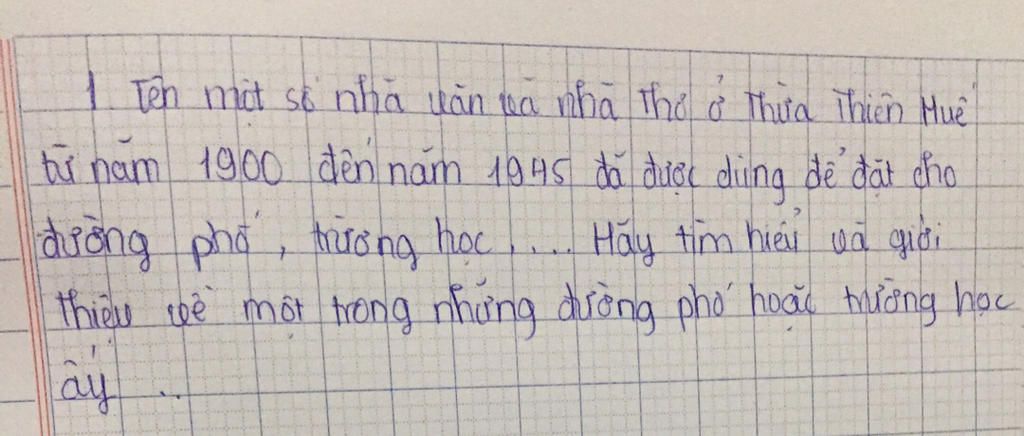 1. Tên một số nhà văn và nhà thơ ở Thừa Thiên Huế
từ năm 1900 đến năm 1945 đã được dùng để đặt cho
đường phố, trường học,... Hãy tìm hiểu và giới
thiệu về một trong những đường phố hoặc trường học
ấy...